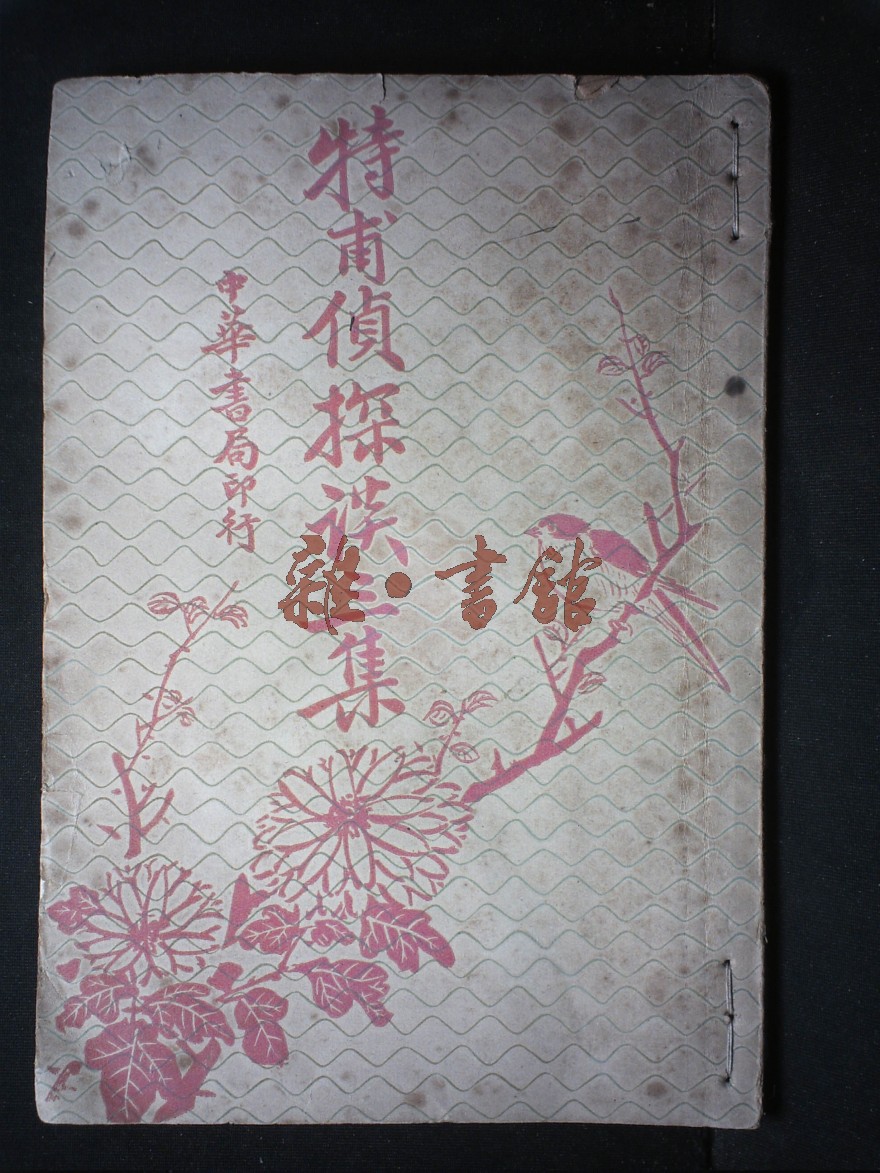 特甫偵探談三集
中華書局印行
雜·書館